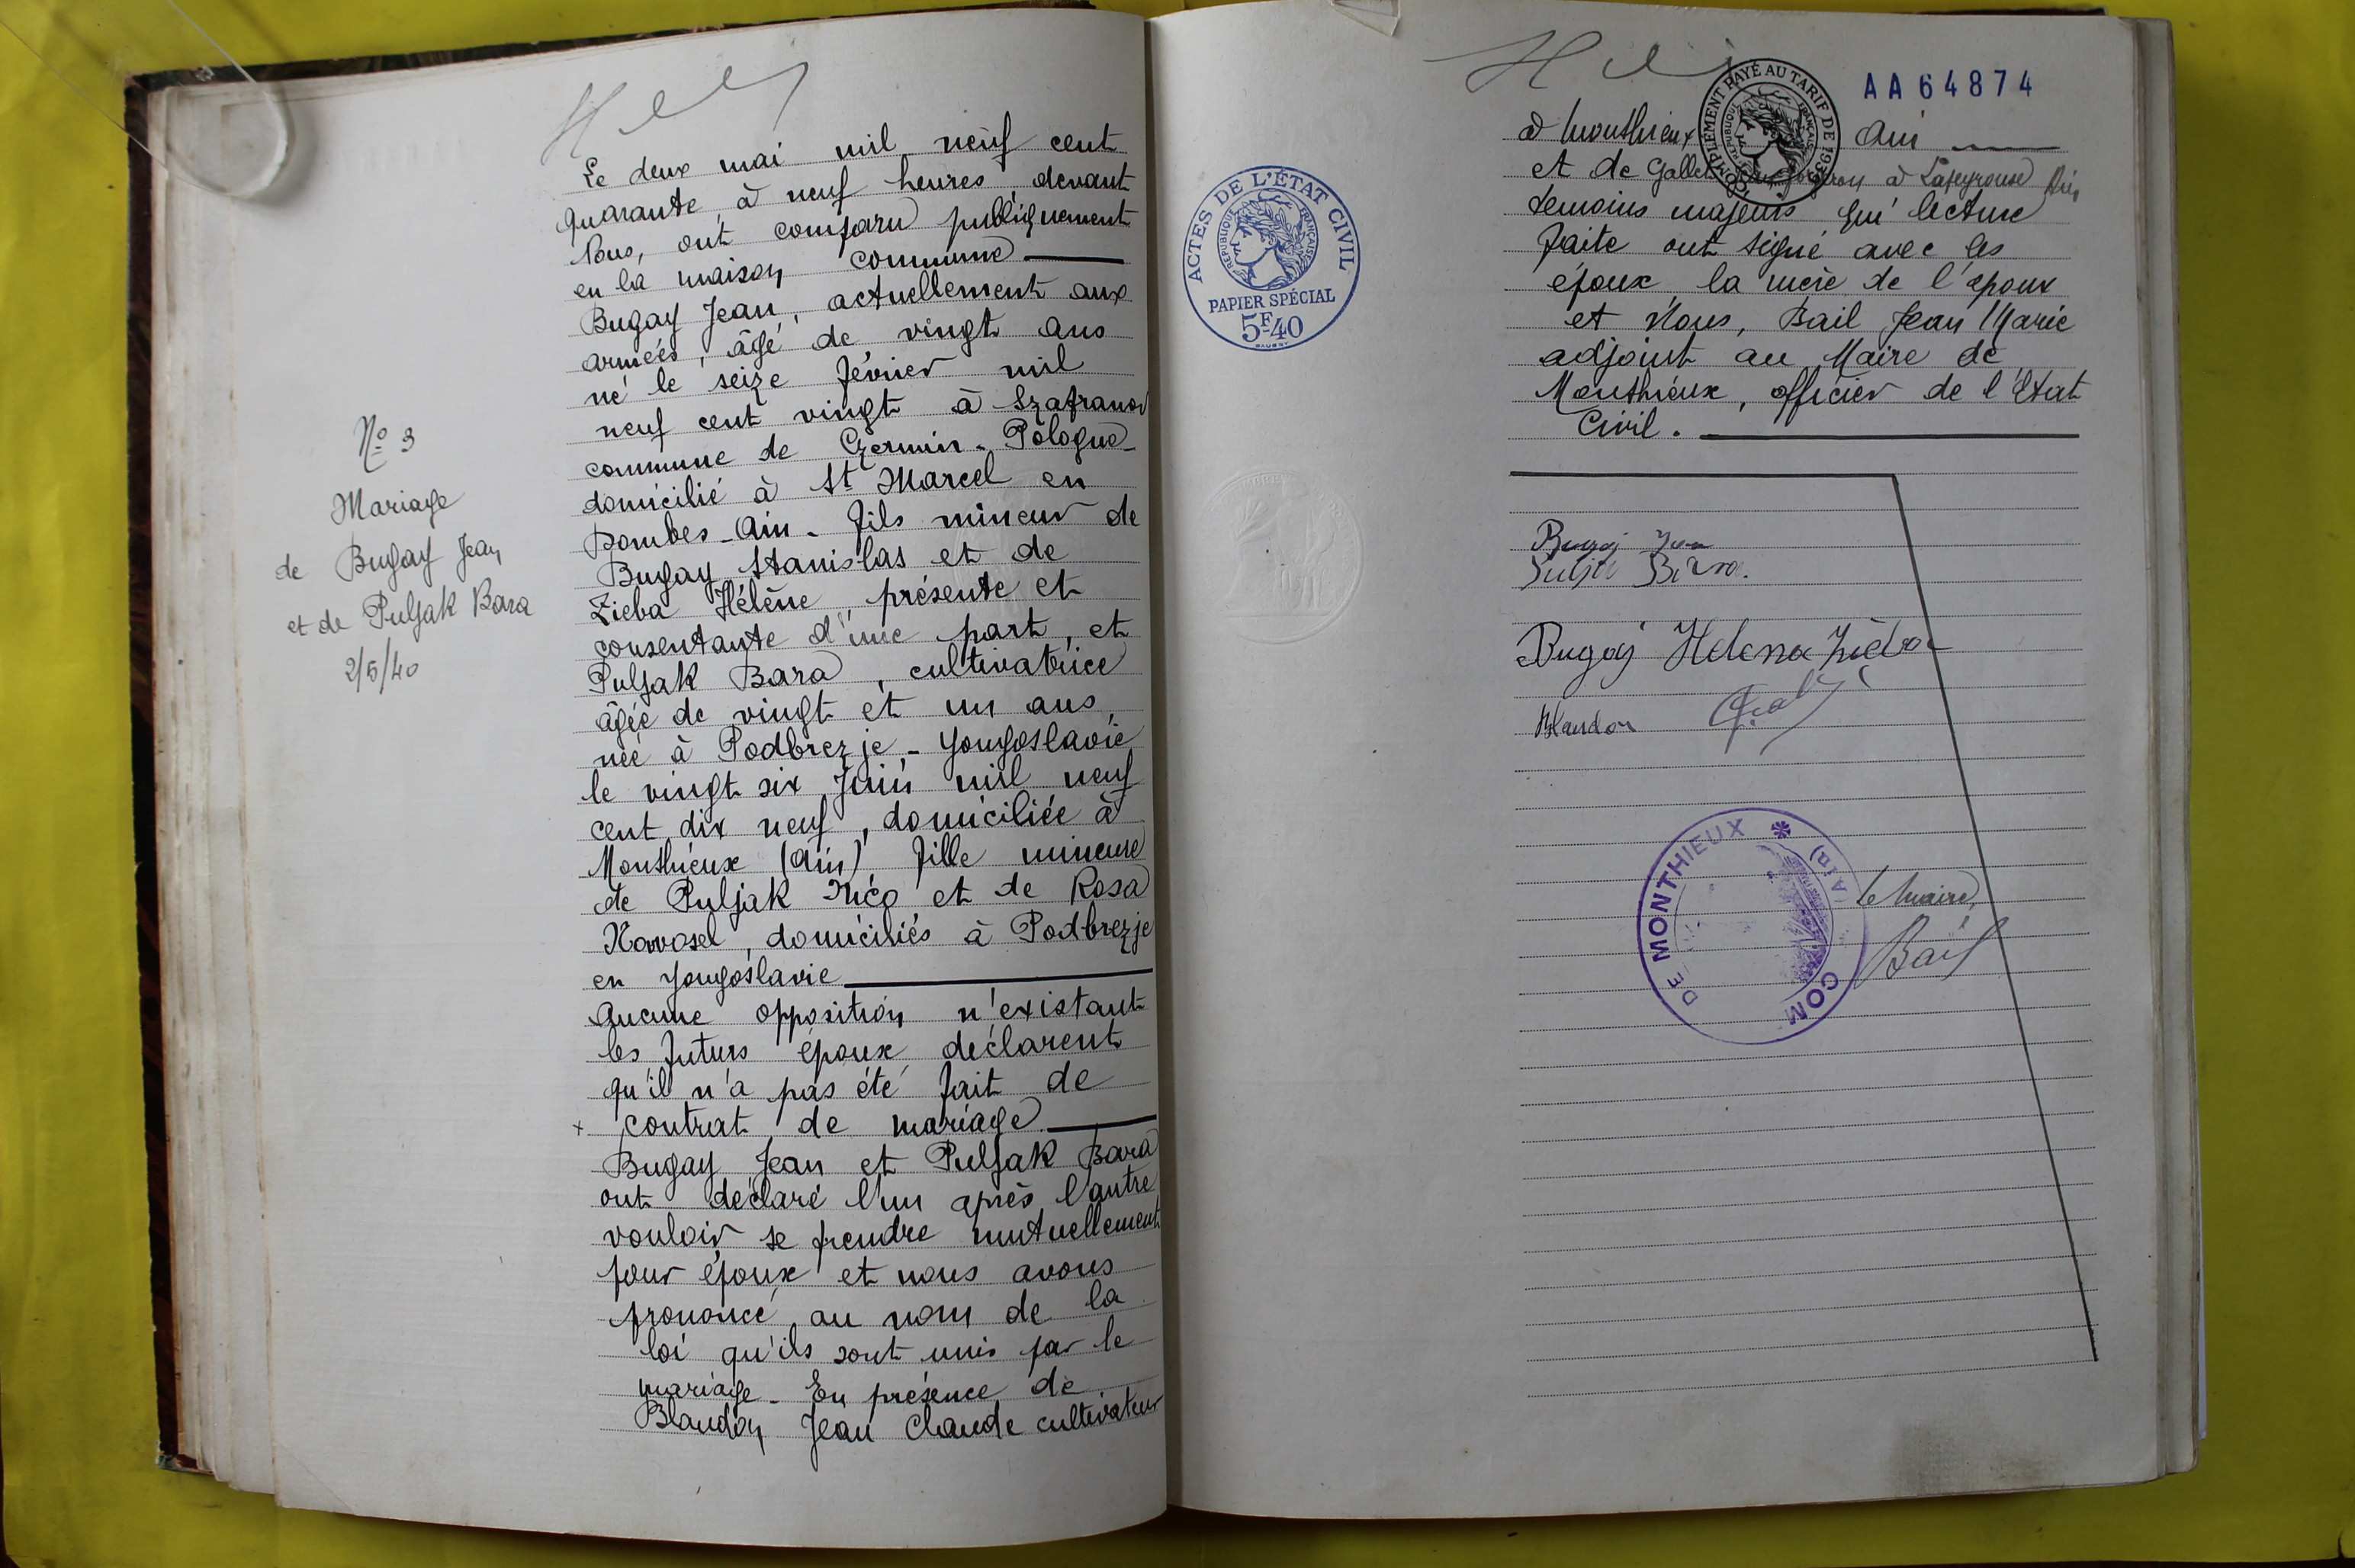 Nº 3
Mariage
de Bugay Jean
et de Puljak Bara
2/5/40
Le deux mai mil neuf cent
quarante à neuf heures, devant
Nous, ont comparu publiquement
en la maison commune
Bugay Jean, actuellement aux
armées, âgé de vingt ans
né le seize février mil
neuf cent vingt à Szafranow
commune de Czermin - Pologne
domicilié à St Marcel en
Dombes - Ain - fils mineur de
Bugay Stanislas et de
Zieba Hélène, présente et
consentante d'une part, et
Puljak Bara, cultivatrice
âgée de vingt et un ans,
née à Podbrezje - Yougoslavie
le vingt six Juin mil neuf
cent dix neuf, domiciliée à
Monthieux (Ain) fille mineure
de Puljak Nico et de Rosa
Navosel, domiciliés à Podbrezje
en Yougoslavie
Aucune opposition n'existant
les futurs époux déclarent
qu'il n'a pas été fait de
+ contrat de mariage
Bugay Jean et Puljak Bara
ont déclaré l'un après l'autre
vouloir se prendre mutuellement
pour époux et nous avons
prononcé au nom de la
loi qu'ils sont unis par le
mariage - En présence de
Blandon Jean Claude cultivateur
ACTES DE L'ÉTAT CIVIL
RÉPUBLIQUE FRANÇAISE
PAPIER SPÉCIAL
5F40
AA64874
COMPLÉMENT PAYÉ AU TARIF DE
RÉPUBLIQUE FRANÇAISE
à Monthieux Ain
et de Gallet à Lapeyrouse Ain
témoins majeurs qui lecture
faite ont signé avec les
époux, la mère de l'époux
et Nous, Bail Jean Marie
adjoint au Maire de
Monthieux, officier de l'Etat
Civil.
Bugaj Jean
Puljak Bara.
Bugaj Helena Zięba
Blandon
COM DE MONTHIEUX (AIN)
Le Maire,
Bail